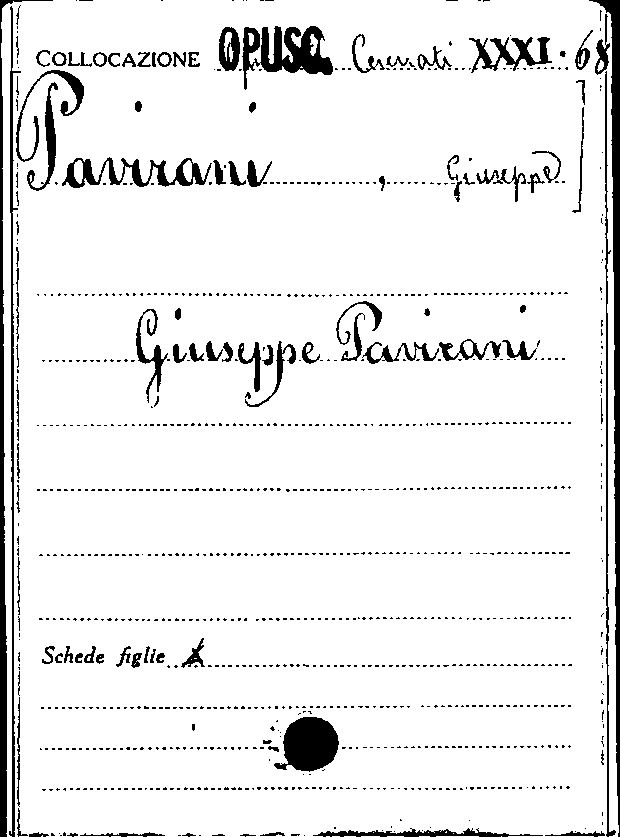 COLLOCAZIONE OPUSC. Cesenati XXXI. 68
Pavirani, Giuseppe]
Giuseppe Pavirani
Schede figlie